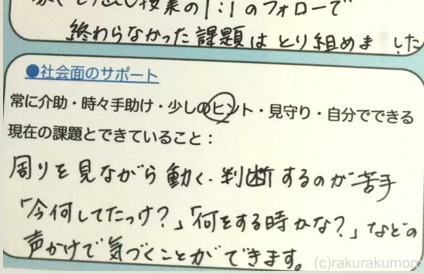 授業の1:1のフォローで
終わらなかった課題はとり組めました
●社会面のサポート
常に介助・時々手助け・少しのヒント・見守り・自分でできる
現在の課題とできていること：
周りを見ながら動く・判断するのが苦手
「今何してたっけ？」「何をする時かな？」などの
声かけで気づくことができます。
(c)rakurakumom